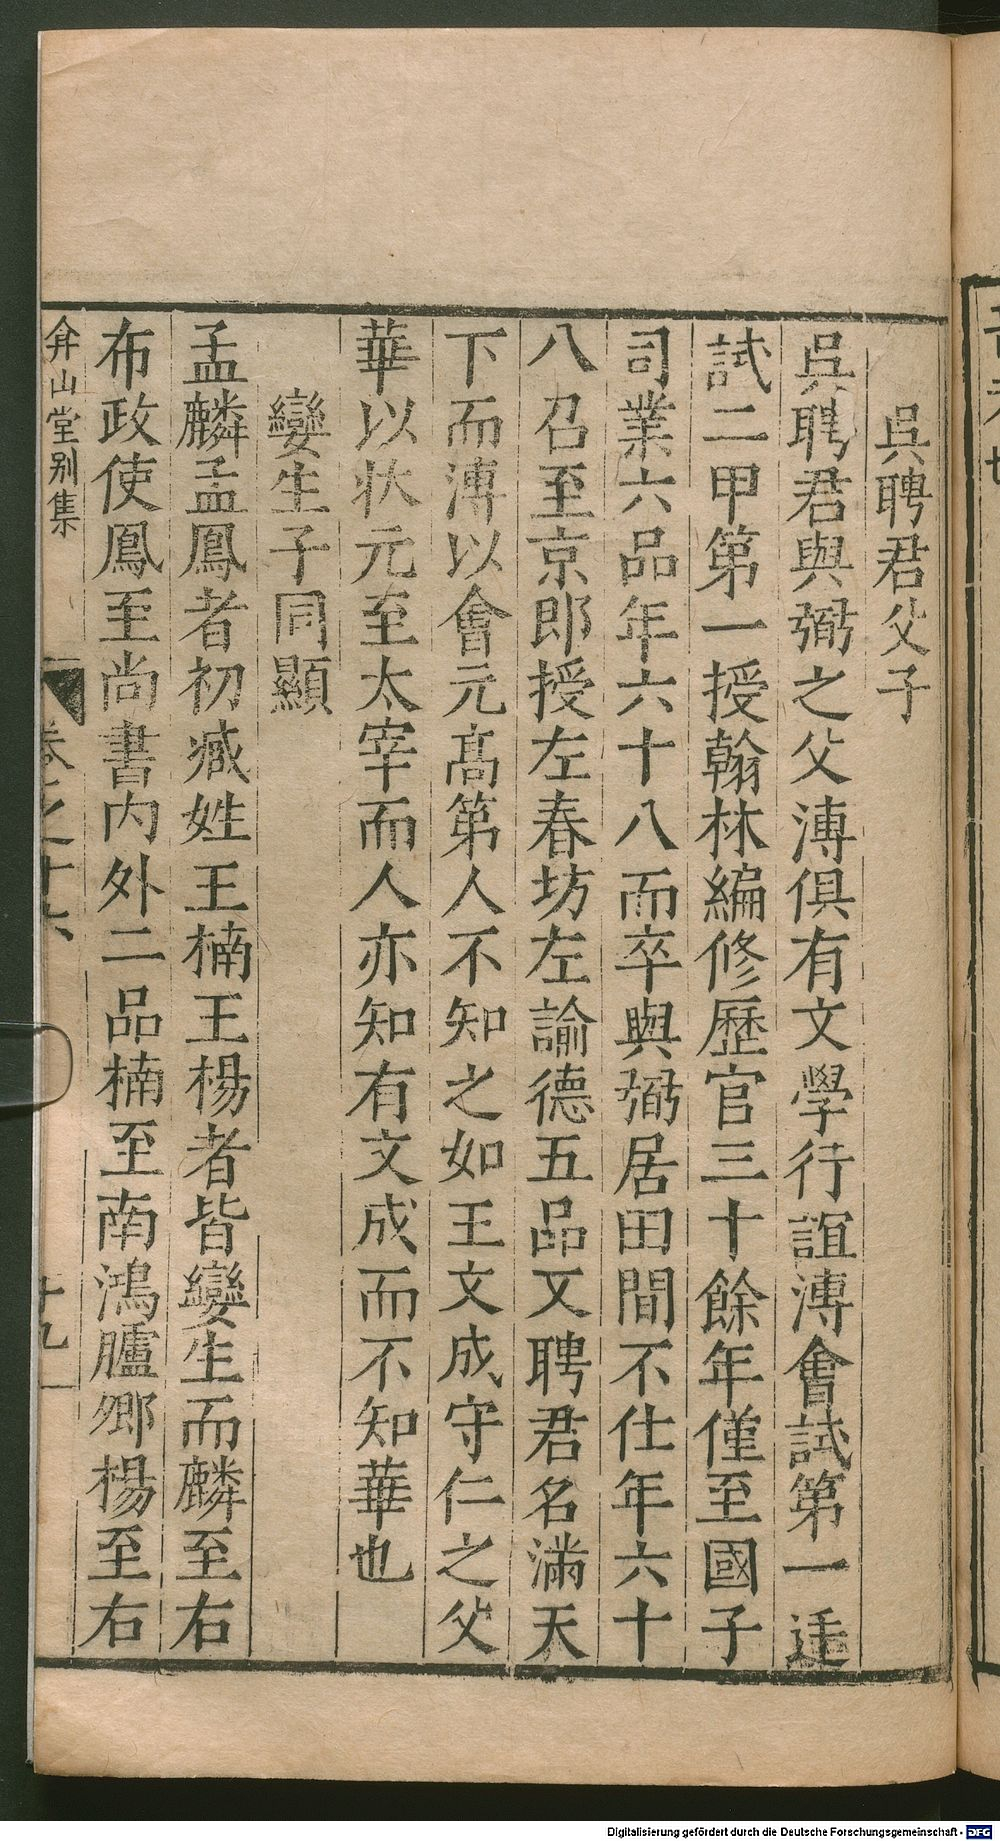 吳聘君父子
吳聘君與弼之父溥俱有文學行誼溥會試第一廷
試二甲第一授翰林編修歷官三十餘年僅至國子
司業六品年六十八而卒與弼居田間不仕年六十
八召至京郎授左春坊左諭德五品又聘君名滿天
下而溥以會元高第人不知之如王文成守仁之父
華以狀元至太宰而人亦知有文成而不知華也
孿生子同顯
孟麟孟鳳者初冒姓王楠王楊者皆孿生而麟至右
布政使鳳至尚書內外二品楠至南鴻臚卿楊至右
弇山堂別集
卷之十六
十九
Digitalisierung gefördert durch die Deutsche Forschungsgemeinschaft - DFG